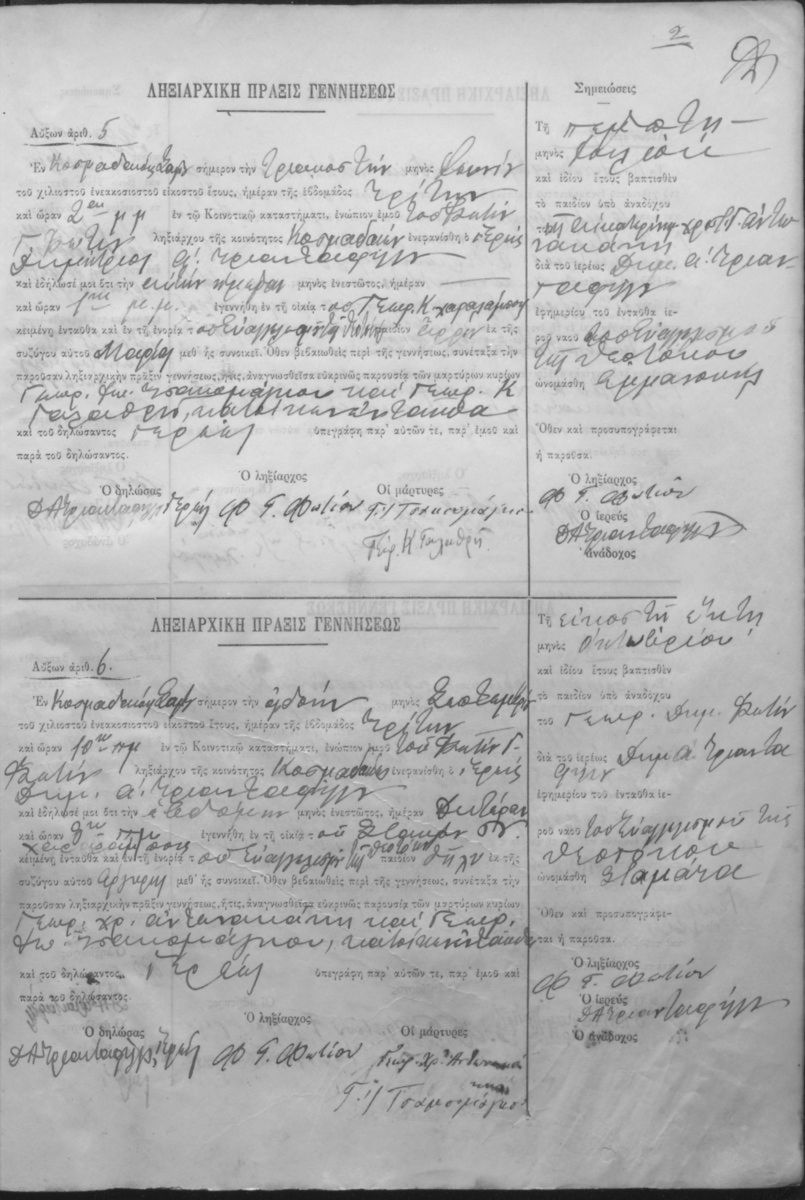 2
ΛΗΞΙΑΡΧΙΚΗ ΠΡΑΞΙΣ ΓΕΝΝΗΣΕΩΣ
Αὔξων ἀριθ. 5
Ἐν σήμερον τὴν τριακοστὴν μηνὸς
τοῦ χιλιοστοῦ ἐνεακοσιοστοῦ εἰκοστοῦ ἔτους, ἡμέραν τῆς ἑβδομάδος τρίτην
καὶ ὥραν 2αν μμ ἐν τῷ Κοινοτικῷ καταστήματι, ἐνώπιον ἐμοῦ τοῦ Φωτίου
Γ. Φωτίου ληξιάρχου τῆς κοινότητος Κοσμαδαίων ἐνεφανίσθη ὁ ἱερεὺς
Δημήτριος Α. Τριανταφύλλου
καὶ ἐδήλωσέ μοι ὅτι τὴν μηνὸς ἐνεστῶτος, ἡμέραν
καὶ ὥραν μ.μ. ἐγεννήθη ἐν τῇ οἰκίᾳ τοῦ Γεωρ. Κ.
κειμένῃ ἐνταῦθα καὶ ἐν τῇ ἐνορίᾳ τοῦ παιδίον ἄρρεν ἐκ τῆς
συζύγου αὐτοῦ Μαρίας μεθ᾽ ἧς συνοικεῖ. Ὅθεν βεβαιωθεὶς περὶ τῆς γεννήσεως, συνέταξα τὴν
παροῦσαν ληξιαρχικὴν πρᾶξιν γεννήσεως, ἥτις, ἀναγνωσθεῖσα εὐκρινῶς παρουσίᾳ τῶν μαρτύρων κυρίων
Γεωρ. καὶ Γεωρ. Κ.
κατοίκων ἐνταῦθα
καὶ τοῦ δηλώσαντος ἱερέως ὑπεγράφη παρ᾽ αὐτῶν τε, παρ᾽ ἐμοῦ καὶ
παρὰ τοῦ δηλώσαντος.
Ὁ ληξίαρχος
Ὁ δηλώσας Οἱ μάρτυρες
ΔΑΤριανταφύλλου ἱερεὺς Φ Γ. Φωτίου
Γεωρ. Κ
Σημειώσεις
Τῇ πέμπτῃ
μηνὸς
καὶ ἰδίου ἔτους βαπτισθὲν
τὸ παιδίον ὑπὸ ἀναδόχου
τῆς Αἰκατερίνης Χρ.
διὰ τοῦ ἱερέως Δημ. Α. Τριαν-
ταφύλλου
ἐφημερίου τοῦ ἐνταῦθα ἱε-
ροῦ ναοῦ τοῦ Εὐαγγελισμοῦ
τῆς Θεοτόκου
ὠνομάσθη Ἐμμανουὴλ
Ὅθεν καὶ προσυπογράφεται
ἡ παροῦσα.
Ὁ ληξίαρχος
Φ Γ. Φωτίου
Ὁ ἱερεὺς
ΔΑΤριανταφύλλου
Ὁ ἀνάδοχος
ΛΗΞΙΑΡΧΙΚΗ ΠΡΑΞΙΣ ΓΕΝΝΗΣΕΩΣ
Αὔξων ἀριθ. 6.
Ἐν σήμερον τὴν ὀγδόην μηνὸς Σεπτεμβρίου
τοῦ χιλιοστοῦ ἐνεακοσιοστοῦ εἰκοστοῦ ἔτους, ἡμέραν τῆς ἑβδομάδος τρίτην
καὶ ὥραν 10ην πμ ἐν τῷ Κοινοτικῷ καταστήματι, ἐνώπιον ἐμοῦ τοῦ Φωτίου Γ.
Φωτίου ληξιάρχου τῆς κοινότητος Κοσμαδαίων ἐνεφανίσθη ὁ ἱερεὺς
Δημ. Α. Τριανταφύλλου
καὶ ἐδήλωσέ μοι ὅτι τὴν ἑβδόμην μηνὸς ἐνεστῶτος, ἡμέραν Δευτέραν
καὶ ὥραν ἐγεννήθη ἐν τῇ οἰκίᾳ τοῦ
κειμένῃ ἐνταῦθα καὶ ἐν τῇ ἐνορίᾳ τοῦ Εὐαγγελισμοῦ τῆς Θεοτόκου παιδίον θῆλυ ἐκ τῆς
συζύγου αὐτοῦ Ἀργυρῆς μεθ᾽ ἧς συνοικεῖ. Ὅθεν βεβαιωθεὶς περὶ τῆς γεννήσεως, συνέταξα τὴν
παροῦσαν ληξιαρχικὴν πρᾶξιν γεννήσεως, ἥτις, ἀναγνωσθεῖσα εὐκρινῶς παρουσίᾳ τῶν μαρτύρων κυρίων
Γεωρ. Χρ. καὶ Γεωρ.
κατοίκων ἐνταῦθα
καὶ τοῦ δηλώσαντος ἱερέως ὑπεγράφη παρ᾽ αὐτῶν τε, παρ᾽ ἐμοῦ καὶ
παρὰ τοῦ δηλώσαντος.
Ὁ ληξίαρχος
Ὁ δηλώσας Οἱ μάρτυρες
ΔΑΤριανταφύλλου ἱερεὺς Φ Γ. Φωτίου Γεωρ. Χρ.
Τῇ εἰκοστῇ ἕκτῃ
μηνὸς Ὀκτωβρίου
καὶ ἰδίου ἔτους βαπτισθὲν
τὸ παιδίον ὑπὸ ἀναδόχου
τοῦ Γεωρ. Δημ. Φωτίου
διὰ τοῦ ἱερέως Δημ Α. Τριαντα
φύλλου
ἐφημερίου τοῦ ἐνταῦθα ἱε-
ροῦ ναοῦ τοῦ Εὐαγγελισμοῦ τῆς
Θεοτόκου
ὠνομάσθη Σταμάτα
Ὅθεν καὶ προσυπογράφε-
ται ἡ παροῦσα.
Ὁ ληξίαρχος
Φ Γ. Φωτίου
Ὁ ἱερεὺς
ΔΑΤριανταφύλλου
Ὁ ἀνάδοχος